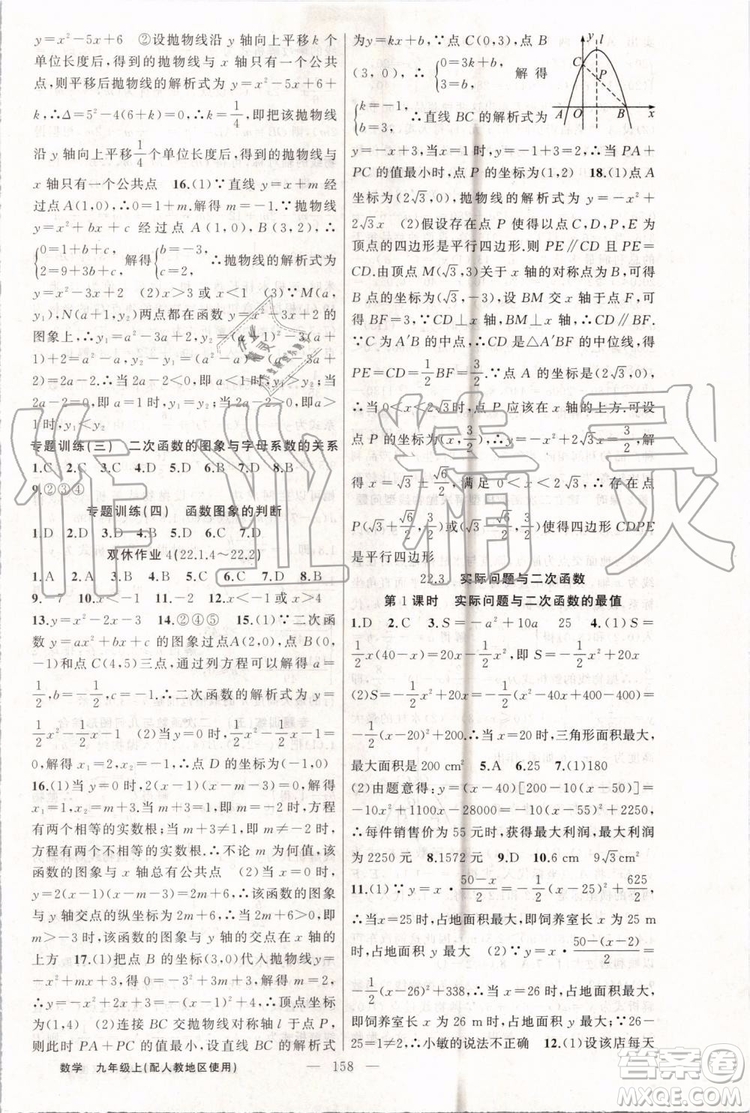 y=x²-5x+6　②设抛物线沿 y 轴向上平移 k 个
单位长度后,得到的抛物线与 x 轴只有一个公共
点,则平移后抛物线的解析式为 y=x²-5x+6+
k,∴Δ=5²-4(6+k)=0,∴k=1/4,即把该抛物线
沿 y 轴向上平移1/4个单位长度后,得到的抛物线与
x 轴只有一个公共点　16.(1)∵直线 y=x+m 经
过点 A(1,0),∴0=1+m,∴m=-1,∵抛物线
y=x²+bx+c 经过点 A(1,0),B(3,2),∴
{0=1+b+c, 2=9+3b+c,解得{b=-3, c=2,∴抛物线的解析式为
y=x²-3x+2　(2)x>3 或 x<1　(3)∵M(a,
y₁),N(a+1,y₂)两点都在函数 y=x²-3x+2 的
图象上,∴y₂-y₁=(a+1)²-3(a+1)+2-(a²-
3a+2)=2a-2,∴当 2a-2<0,即 a<1 时,y₁>
y₂;当 2a-2=0,即 a=1 时,y₁=y₂;当 2a-2>0,
即 a>1 时,y₁<y₂
专题训练(三)　二次函数的图象与字母系数的关系
1.C　2.C　3.C　4.D　5.D　6.D　7.D　8.C
9.②③④
专题训练(四)　函数图象的判断
1.D　2.D　3.D　4.C　5.D　6.C　7.B
双休作业 4(22.1.4～22.2)
1.A　2.C　3.A　4.D　5.D　6.D　7.D　8.B
9.<　7　10.<4　11.>　12.<　13.x<-1 或 x>4
14.②④⑤　15.(1)∵二次函
数 y=ax²+bx+c 的图象过点 A(2,0),B(0,-1)
和点 C(4,5)三点,通过列方程可解得 a=
1/2,b=-1/2,c=-1,∴二次函数的解析式为 y=
1/2x²-1/2x-1　(2)(-1,0)　(3)-1<x<4
16.(1)当 y=0 时,2(x-1)(x-m-3)=0,解得
x₁=1,x₂=m+3,当 m+3=1,即 m=-2 时,方程
有两个相等的实数根;当 m+3≠1,即 m≠-2 时,
方程有两个不相等的实数根;∴不论 m 为何值,该
函数的图象与 x 轴总有公共点　(2)当 x=0 时,
y=2(x-1)(x-m-3)=2m+6,∴该函数的图象
与 y 轴交点的纵坐标为 2m+6,∴当 2m+6>0,即
m>-3 时,该函数的图象与 y 轴的交点在 x 轴的
上方　17.(1)将点 B 的坐标(3,0)代入抛物线
y=-x²+(m-1)x+m,解得 m=3,∴抛物线的解析
式为 y=-x²+2x+3=-(x-1)²+4,∴顶点坐标
为(1,4)　(2)连接 BC 交抛物线对称轴 l 于点 P,
则此时 PA+PC 的值最小,设直线 BC 的解析式
为 y=kx+b,∵点 C(0,3),点 B
(3,0),∴{0=3k+b, 3=b,解得
{k=-1, b=3,∴直线 BC 的解析式为
y=-x+3,当 x=1 时,y=-1+3=2,∴当 PA+
PC 的值最小时,点 P 的坐标为(1,2)　18.(1)点
C 的坐标为(2√3,0),抛物线的解析式为 y=-x²+
2√3x　(2)假设存在点 P 使得以 C,D,P,E 为
顶点的四边形是平行四边形,则 PE∥CD 且 PE=
CD.由顶点 M(√3,3)关于 x 轴的对称点可得点
B 的坐标为(2√3,0),设 BM 交 x 轴于点 F,可
得 BF=3,∵CD⊥x 轴,PA⊥x 轴,∴PE⊥x
轴,∵OA=AC,∴CD是△OBF 的中位线,得
PE=CD=1/2BF=3/2,∴点 P 的纵坐标是±3/2,
∵点 P 在 x 轴的上方,∴点 P 应该在 x 轴的上方.可得
点 P 的坐标为(x,3/2),∴-x²+2√3x=3/2,解得 x=
√3±√6/2,∴满足条件的点存在,点 P 的坐标为
P(√3+√6/2,3/2)或(√3-√6/2,3/2)使得四边形 CDPE
是平行四边形
22.3　实际问题与二次函数
第 1 课时　实际问题与二次函数的最值
1.D　2.C　3.S=-a²+10a　25　4.(1)S=
1/2x(40-x)=-1/2x²+20x,即 S=-1/2x²+20x
(2)S=-1/2x²+20x=-1/2(x²-40x+400-400)=
-1/2(x-20)²+200,∴当 x=20 时,三角形面积最大,
最大面积是 200 cm²　5.A　6.25　7.(1)180
(2)由题意得:y=(x-40)[200-10(x-50)]=
-10x²+1100x-28000=-10(x-55)²+2250,
∴每件销售价为 55 元时,获得最大利润,最大利润
为 2250 元　8.1572　9.D　10.6 cm　9√3cm²
11.(1)∵y=x·(50-x)/2=-1/2(x-25)²+625/2,
∴当 x=25 时,占地面积最大,即饲养室长 x 为 25 m
时,占地面积最大　(2)∵y=x·[50-(x-2)]/2=
-1/2(x-26)²+338,∴当 x=26 时,占地面积最大,
即饲养室长 x 为 26 m 时,占地面积最大;∵26-
25=1≠2,∴小敏的说法不正确　12.(1)设该店每天
数学　九年级上(配人教地区使用)　— 158 —